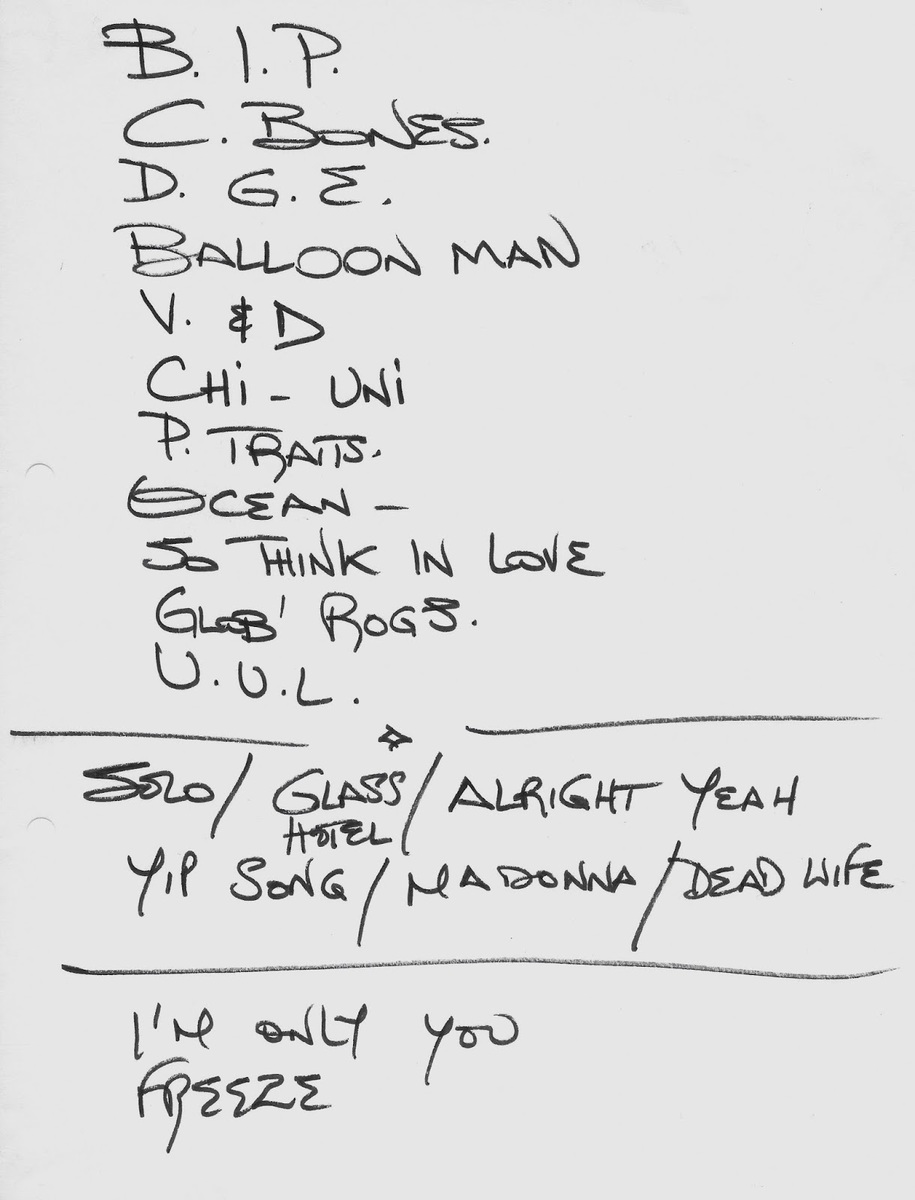 B. I. P.
C. BONES.
D. G. E.
BALLOON MAN
V. & D
CHi - UNi
P. TRAITS.
OCEAN -
SO THINK IN LOVE
GLOB' ROGS.
U. U. L.
SOLO / GLASS HOTEL / ALRIGHT YEAH
YIP SONG / MADONNA / DEAD WIFE
I'M ONLY YOU
FREEZE